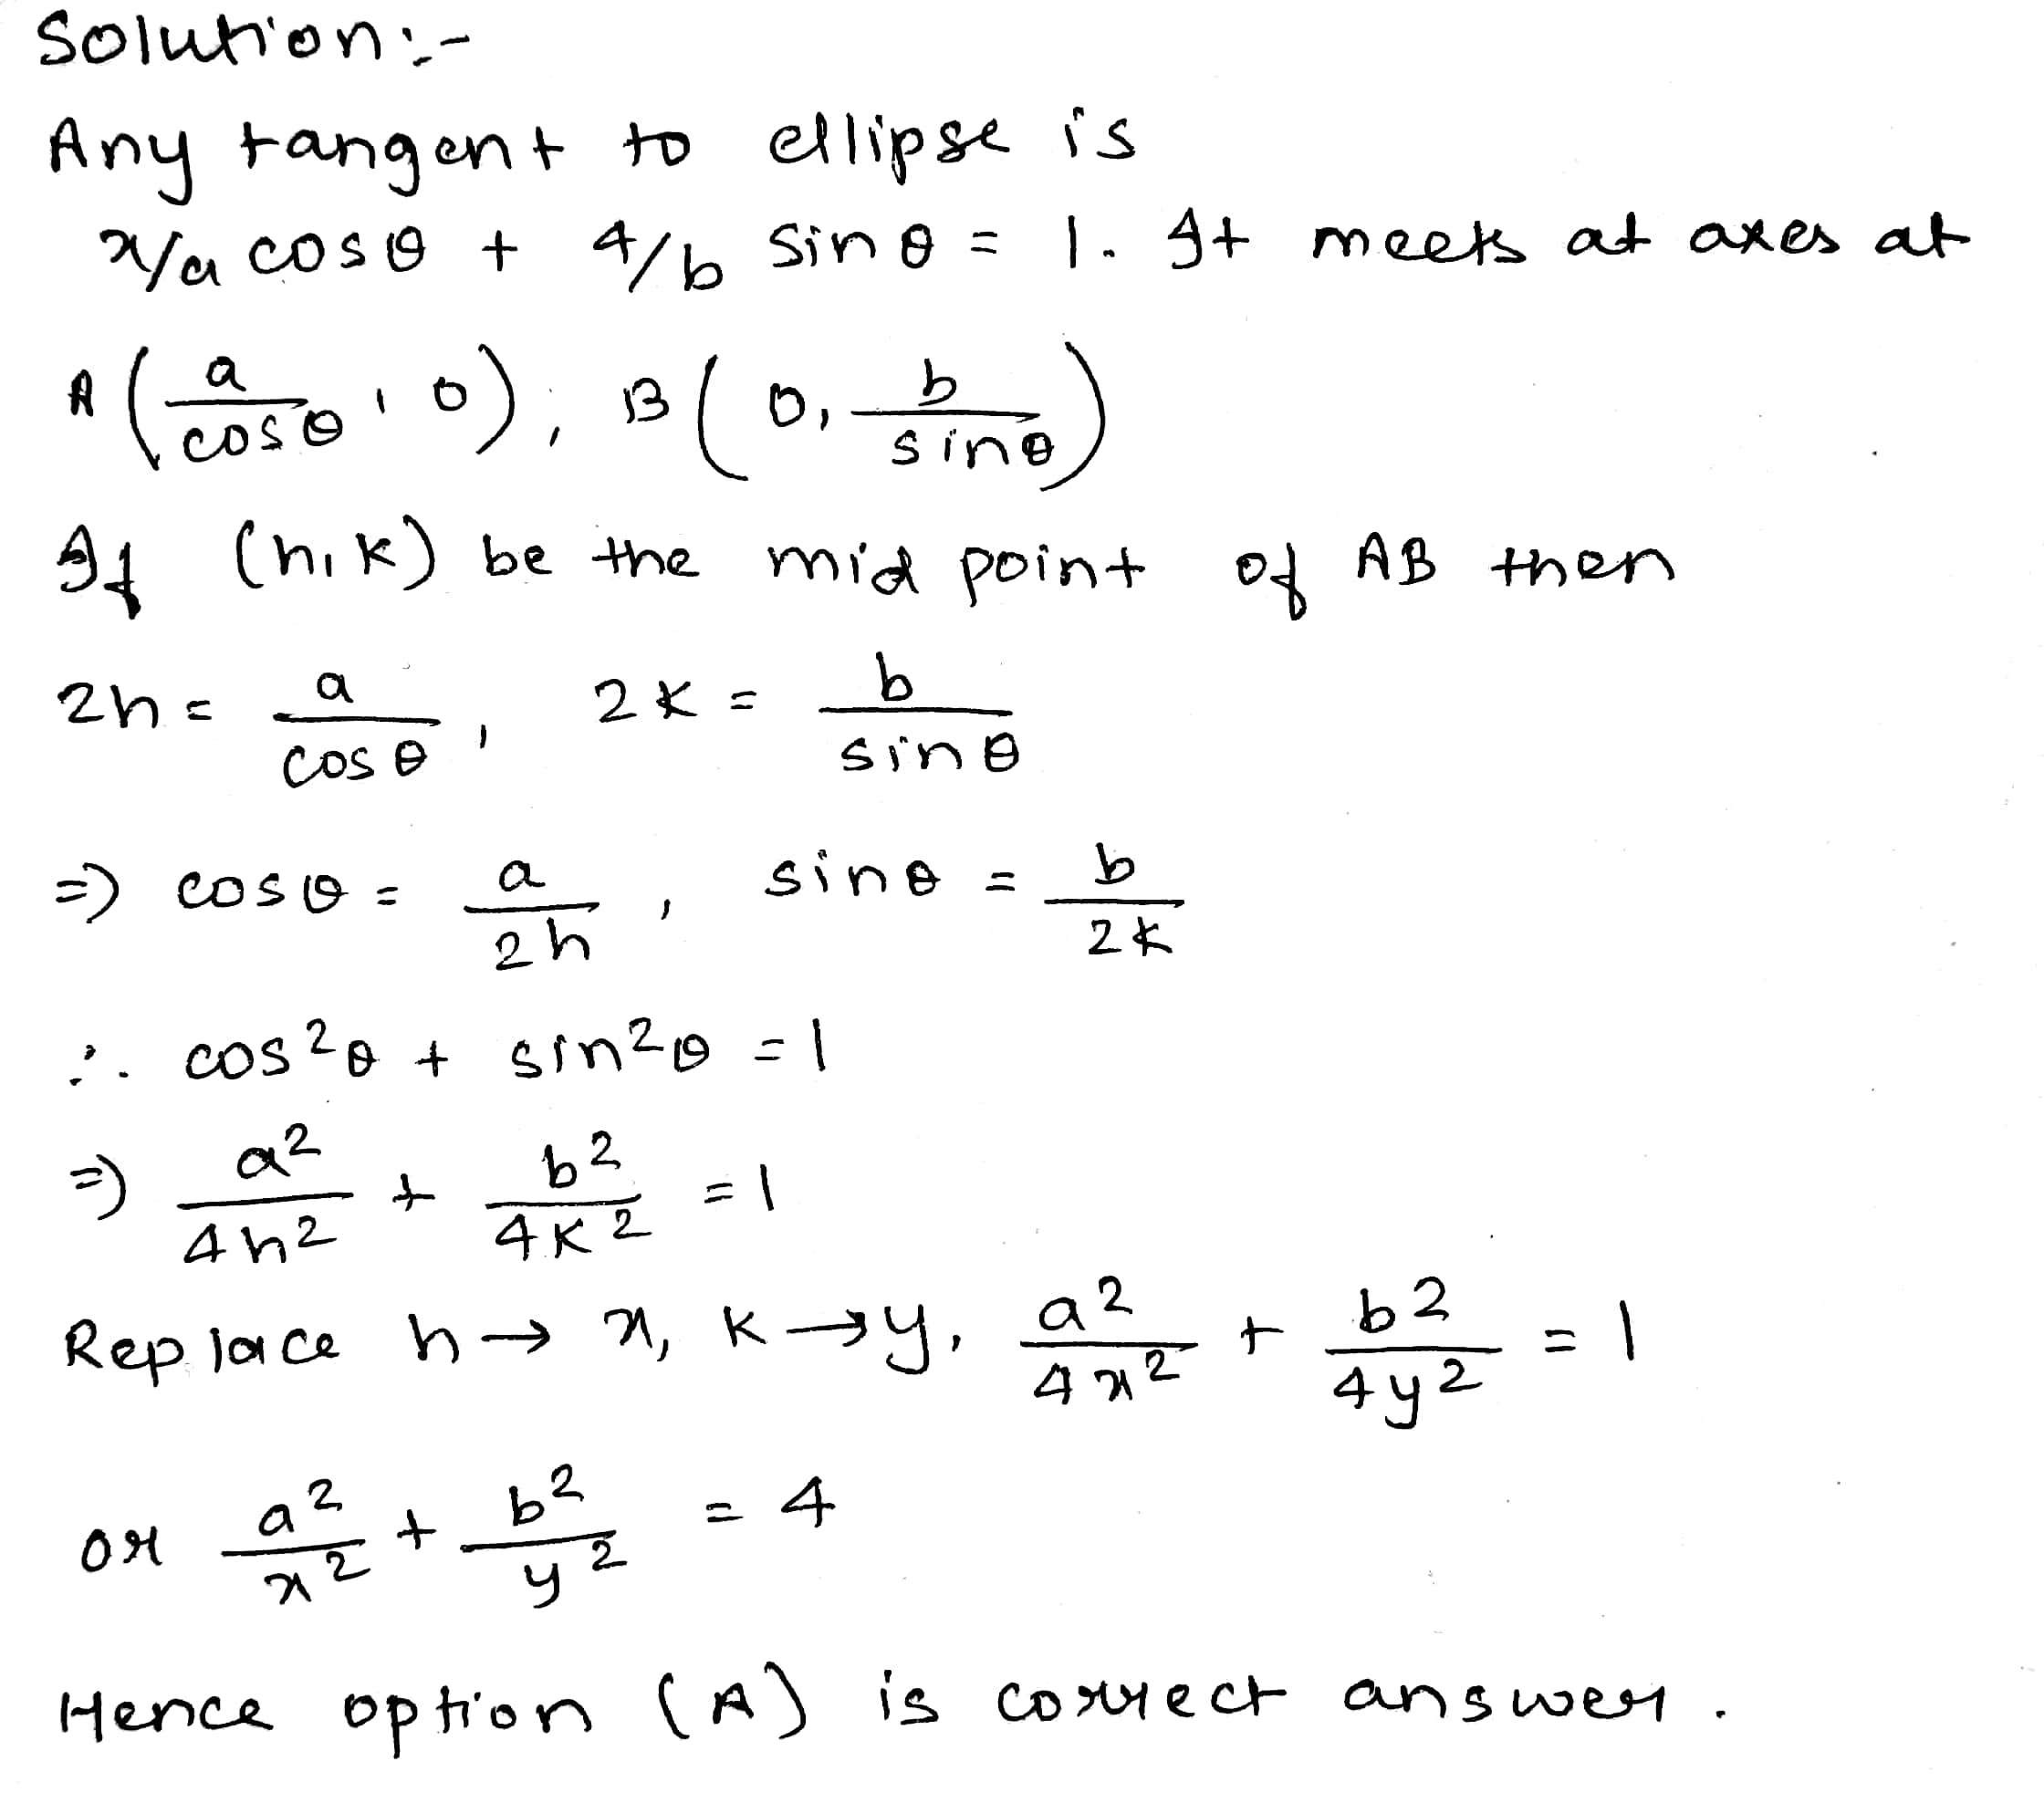 Solution:-
Any tangent to ellipse is
x/a cosθ + y/b sinθ = 1. It meets at axes at
A(a/cosθ, 0), B(0, b/sinθ)
If (h,k) be the mid point of AB then
2h = a/cosθ, 2k = b/sinθ
=) cosθ = a/2h, sinθ = b/2k
∴ cos²θ + sin²θ = 1
=) a²/4h² + b²/4k² = 1
Replace h → x, k → y, a²/4x² + b²/4y² = 1
or a²/x² + b²/y² = 4
Hence option (A) is correct answer.